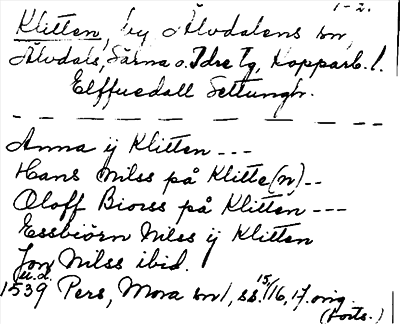 1-2.
Klitten, by Älvdalens sn,
Älvdals, Särna o. Idre Tg, Kopparb. l.
Elffuedall Settungh.
Anna ij Klitten ---
Hans Nilss på Klitte(n)--
Oloff Biorss på Klitten ---
Essbiörn Nilss ij Klitten
Jon Nilss ibid.
u.å.
1539 Pers, Mora sn 1, ss. 15/16, 17. orig.
(forts.)